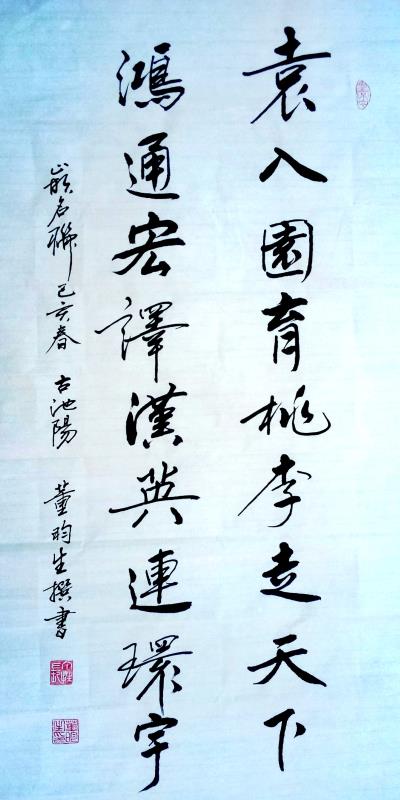 袁入園育桃李走天下
鴻通宏譯漢英連環宇
嵌名聯 己亥春 古池陽 董昀生撰書